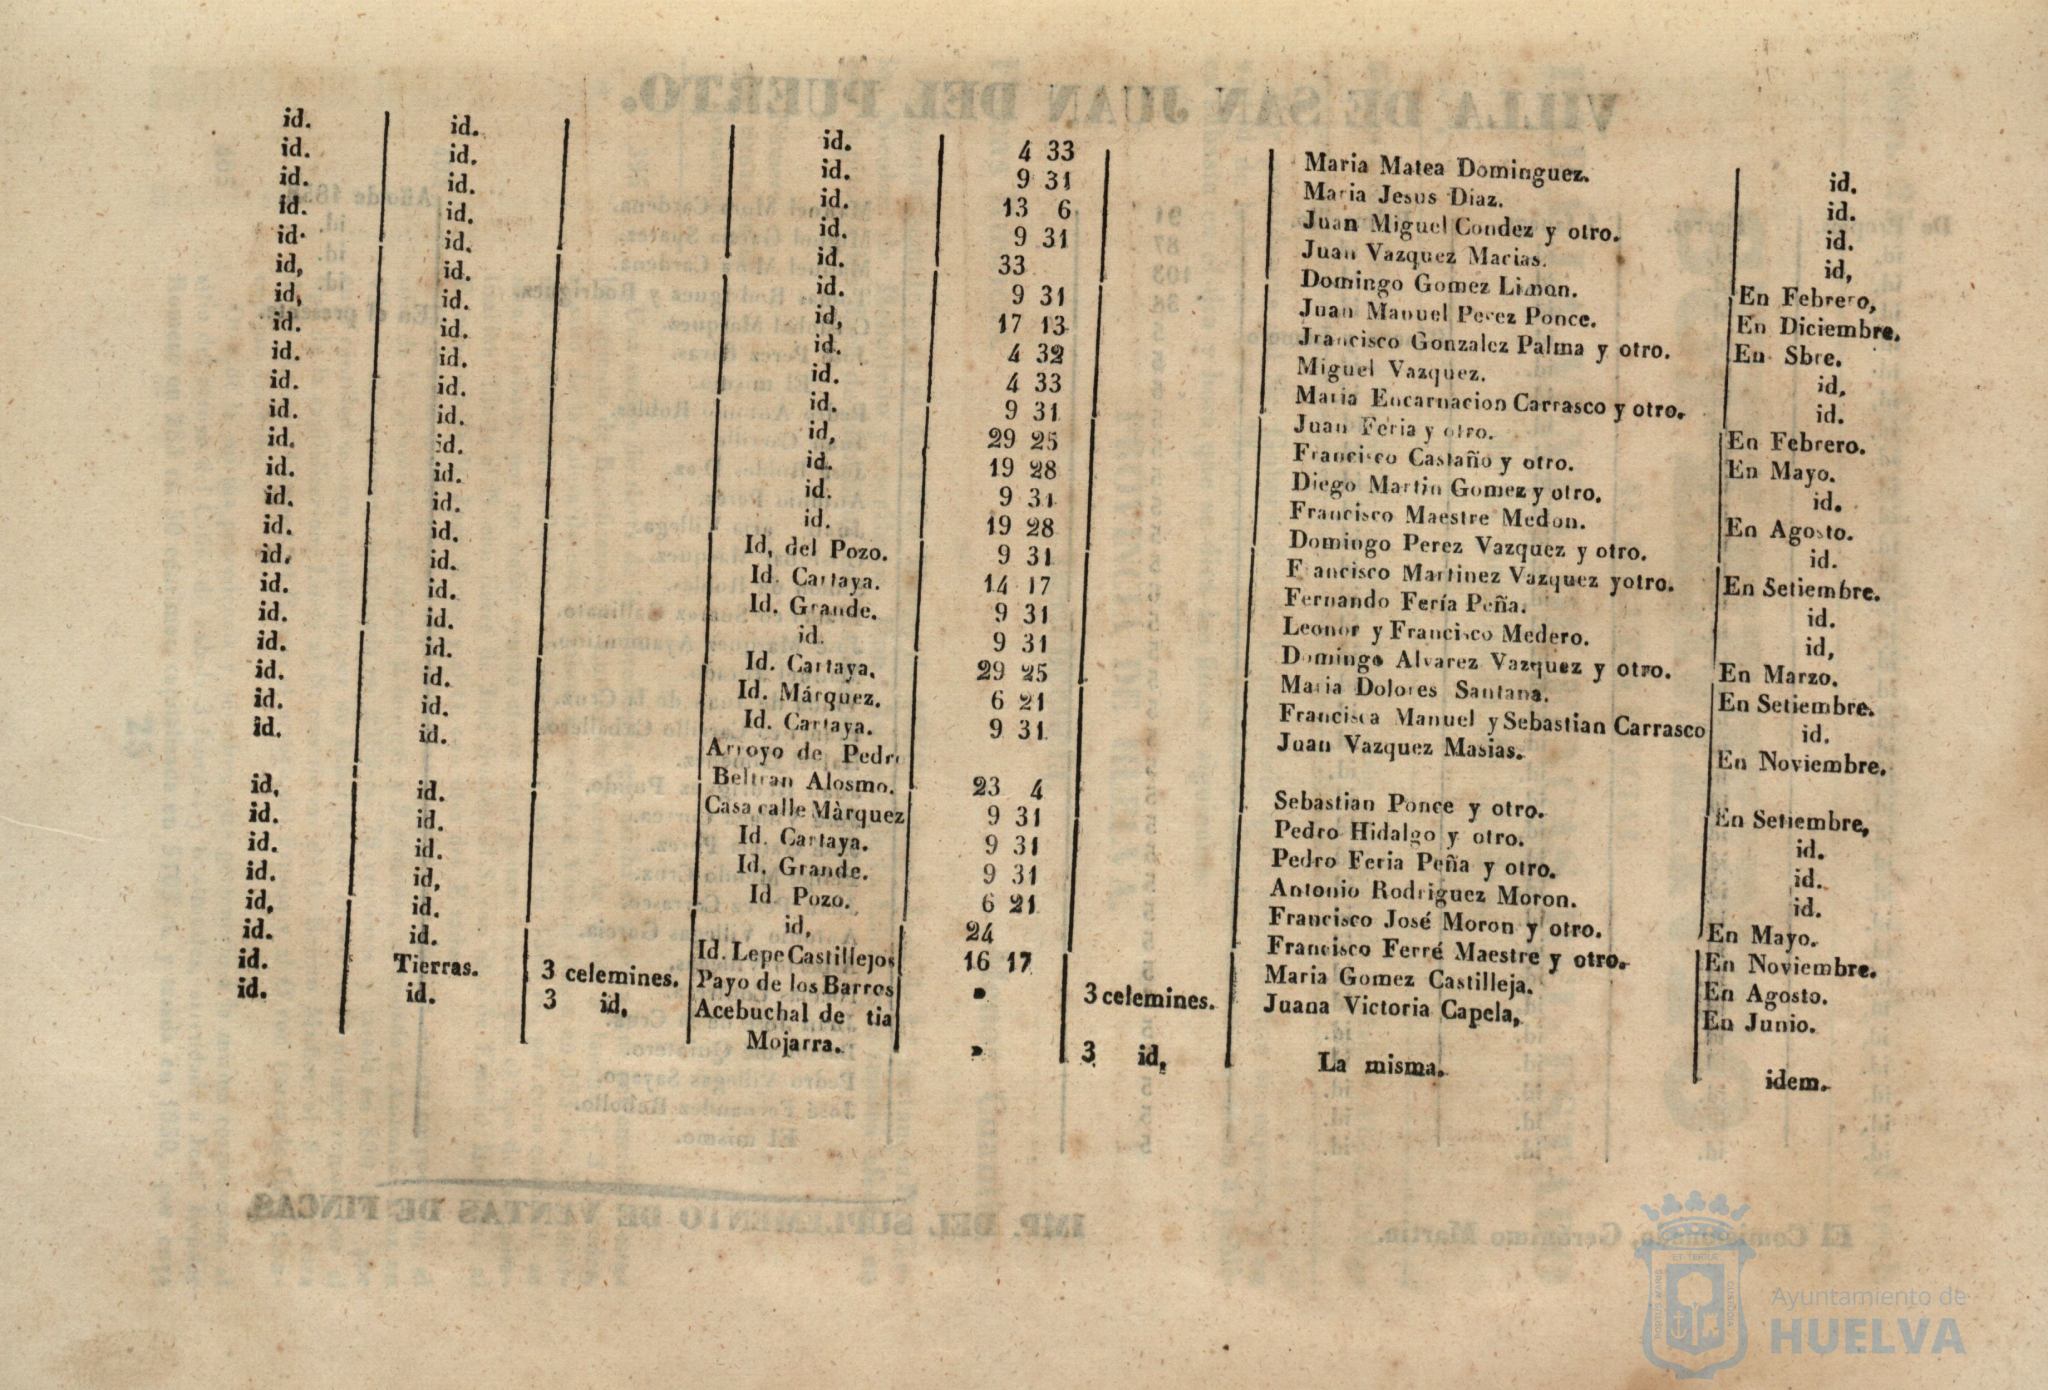 id. id. id. 4 33 Maria Matea Dominguez. id.
id. id. id. 9 31 Maria Jesus Diaz. id.
id. id. id. 13 6 Juan Miguel Condez y otro. id.
id. id. id. 9 31 Juan Vazquez Macias. id,
id· id. id. 33 Domingo Gomez Liman. En Febrero,
id, id. id. 9 31 Juan Manuel Perez Ponce. En Diciembre.
id, id. id, 17 13 Jrancisco Gonzalez Palma y otro. En Sbre.
id. id. id. 4 32 Miguel Vazquez. id,
id. id. id. 4 33 Maria Encarnacion Carrasco y otro. id.
id. id. id. 9 31 Juan Feria y otro. En Febrero.
id. id. id, 29 25 Francisco Castaño y otro. En Mayo.
id. id. id. 19 28 Diego Martin Gomez y otro. id.
id. id. id. 9 31 Francisco Maestre Medon. En Agosto.
id. id. id. 19 28 Domingo Perez Vazquez y otro. id.
id. id. Id, del Pozo. 9 31 Francisco Martinez Vazquez yotro. En Setiembre.
id. id. Id. Cartaya. 14 17 Fernando Fería Peña. id.
id. id. Id. Grande. 9 31 Leonor y Francisco Medero. id,
id. id. id. 9 31 Domingo Alvarez Vazquez y otro. En Marzo.
id. id. Id. Cartaya. 29 25 Maria Dolores Santana. En Setiembre.
id. id. Id. Márquez. 6 21 Francisca Manuel y Sebastian Carrasco id.
id. id. Id. Cartaya. 9 31 Juan Vazquez Masias. En Noviembre.
id. id. Arroyo de Pedro
Beltran Alosmo. 23 4 Sebastian Ponce y otro. En Setiembre,
id, id. Casa calle Màrquez 9 31 Pedro Hidalgo y otro. id.
id. id. Id. Cartaya. 9 31 Pedro Feria Peña y otro. id.
id. id. Id. Grande. 9 31 Antonio Rodriguez Moron. id.
id. id, Id Pozo. 6 21 Francisco José Moron y otro. En Mayo.
id, id. id, 24 Francisco Ferré Maestre y otro. En Noviembre.
id. id. Id. Lepe Castillejos 16 17 Maria Gomez Castilleja. En Agosto.
id. Tierras. 3 celemines. Payo de los Barros » 3 celemines. Juana Victoria Capela, En Junio.
id. id. 3 id, Acebuchal de tia
Mojarra. » 3 id, La misma. idem.
Ayuntamiento de
HUELVA